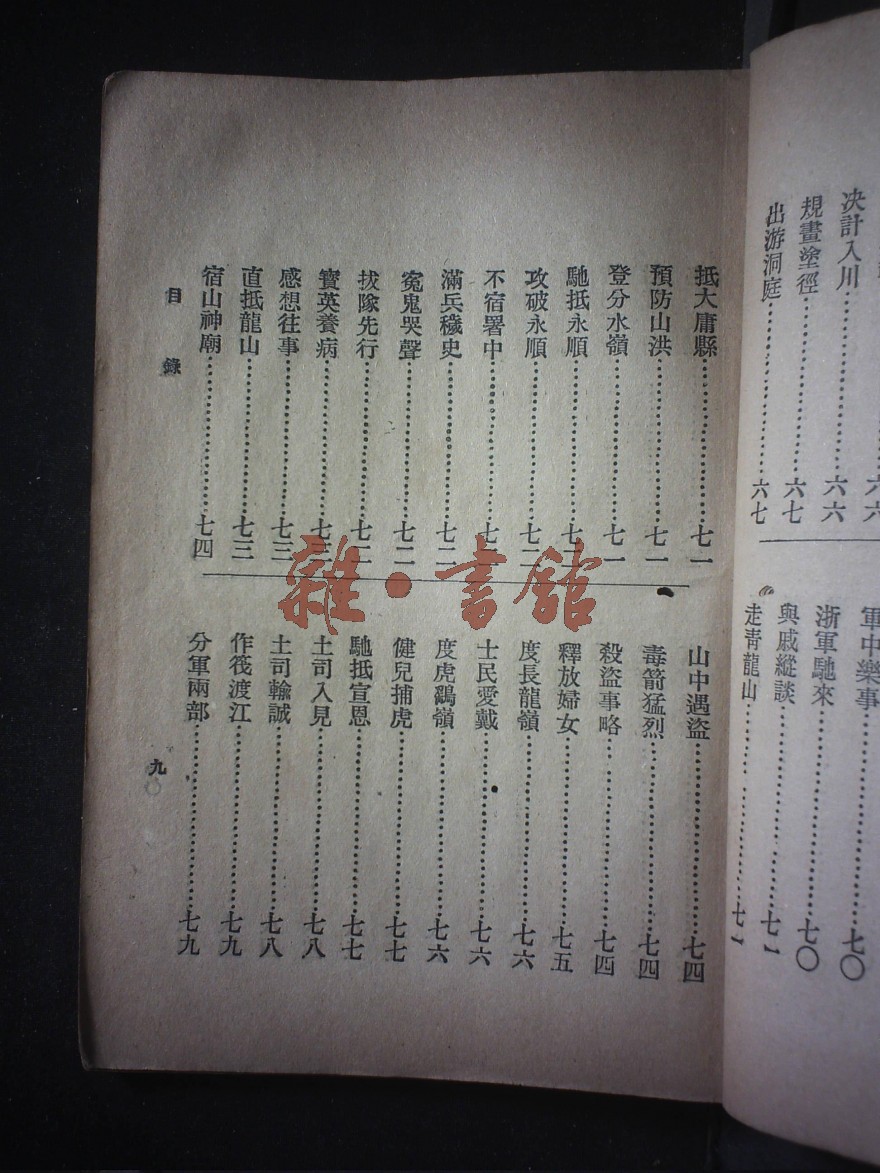 決計入川⋯⋯六六
規畫塗徑⋯⋯六七
出游洞庭⋯⋯六七
軍中樂事⋯⋯七〇
浙軍馳來⋯⋯七〇
與戚縱談⋯⋯七一
走靑龍山⋯⋯七一
抵大庸縣⋯⋯七一
預防山洪⋯⋯七一
登分水嶺⋯⋯七一
馳抵永順⋯⋯七二
攻破永順⋯⋯七二
不宿署中⋯⋯七二
滿兵穢史⋯⋯七二
寃鬼哭聲⋯⋯七二
拔隊先行⋯⋯七三
寶英養病⋯⋯七三
感想往事⋯⋯七三
直抵龍山⋯⋯七三
宿山神廟⋯⋯七四
山中遇盜⋯⋯七四
毒箭猛烈⋯⋯七四
殺盜事略⋯⋯七四
釋放婦女⋯⋯七五
度長龍嶺⋯⋯七六
士民愛戴⋯⋯七六
度虎鷂嶺⋯⋯七六
健兒捕虎⋯⋯七七
馳抵宣恩⋯⋯七七
土司入見⋯⋯七八
土司輸誠⋯⋯七八
作筏渡江⋯⋯七九
分軍兩部⋯⋯七九
目錄
九
雜·書館